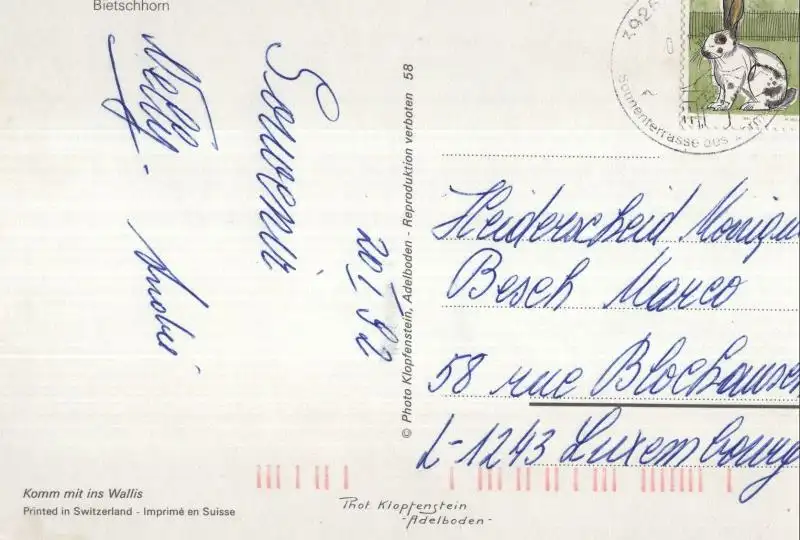 Bietschhorn
Souvenir
20/1 92
Nelly.
André
© Photo Klopfenstein, Adelboden - Reproduktion verboten 58
3925
Sonnenterrasse des
Heiderscheid Moniqu
Besch Marco
58 rue Blochausen
L-1243 Luxembourg
Komm mit ins Wallis
Printed in Switzerland - Imprimé en Suisse
Phot. Klopfenstein
-Adelboden-